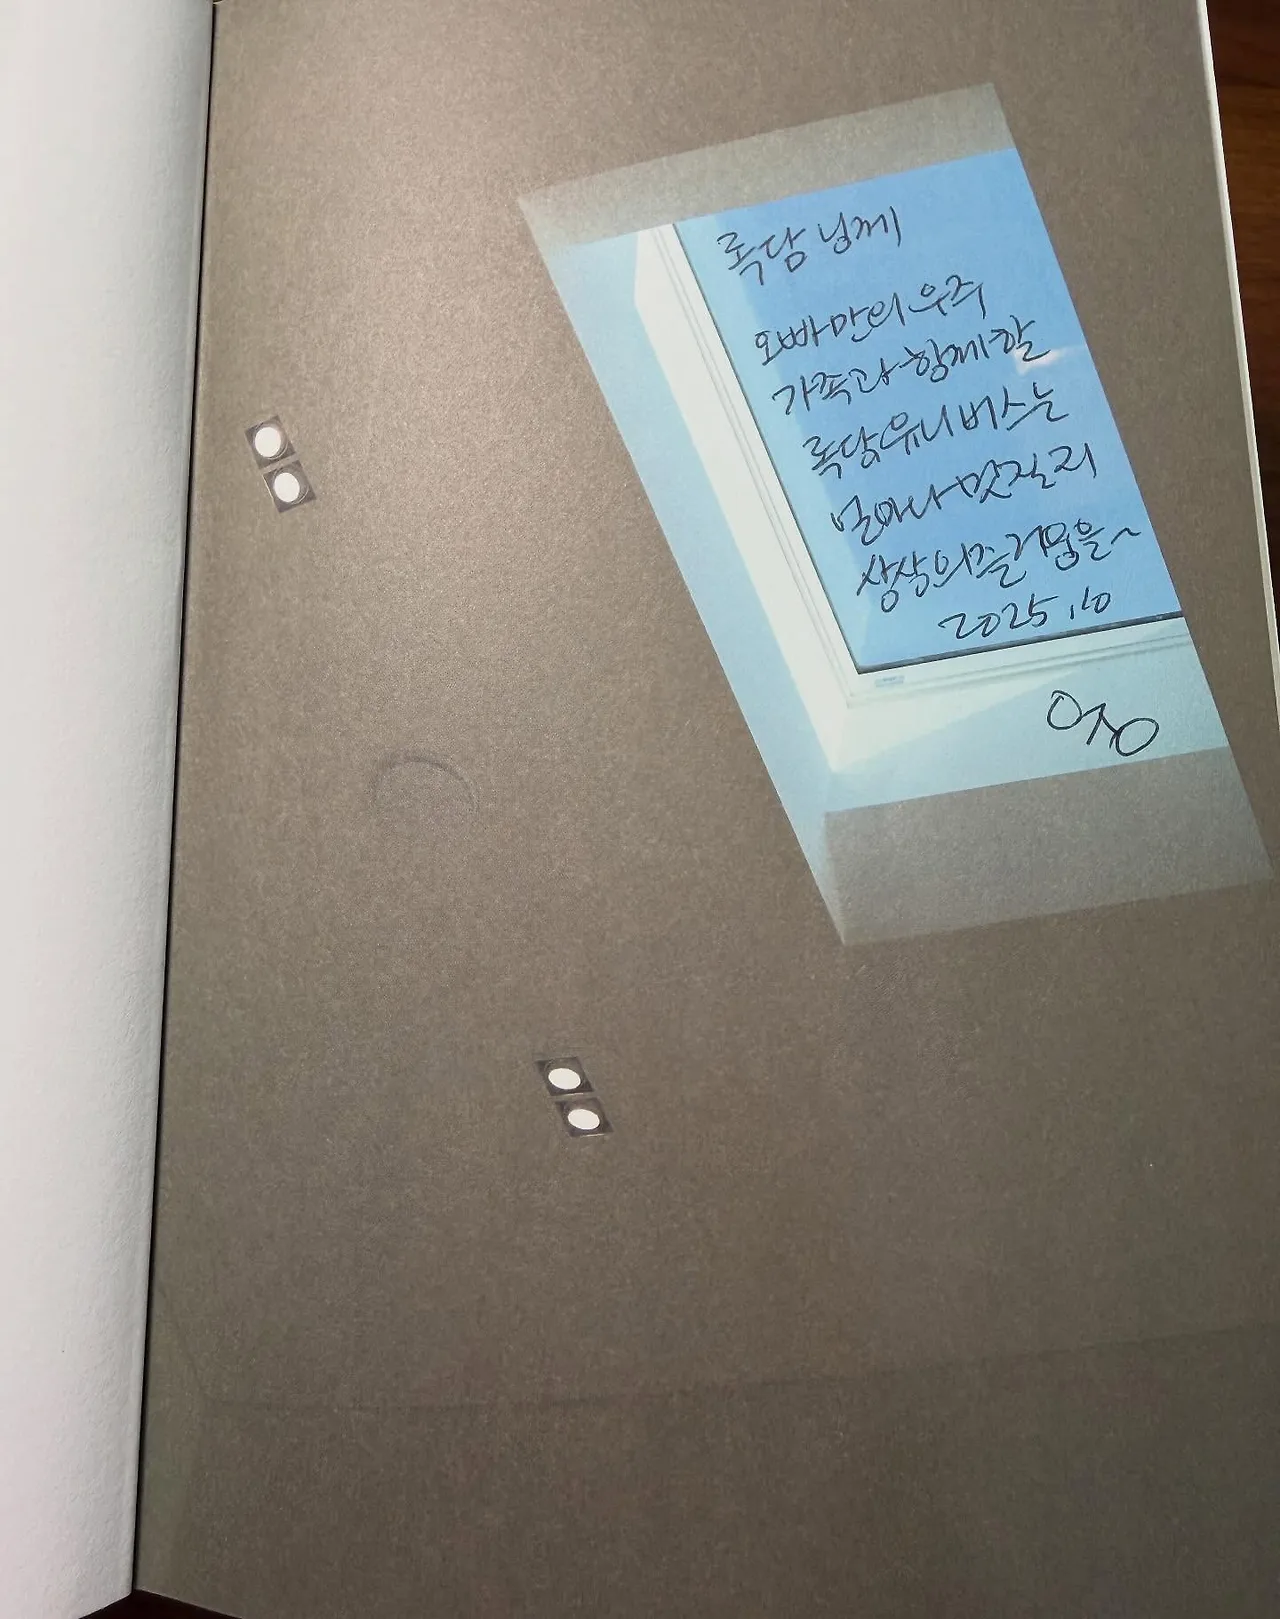 록담 님께
오빠만의 우주
가족과 함께 할
록담유니버스는
얼마나 멋질지
상상의 즐거움을~
2025.10